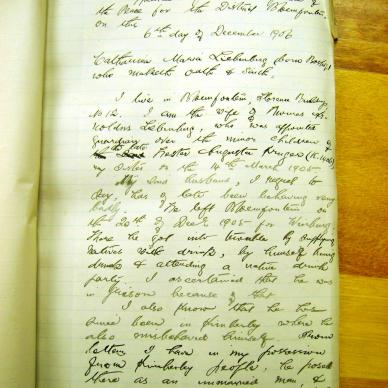 the Peace for the District Bloemfontein
on the
6th day of December 1906
Catharina Maria Liebenberg born
who maketh oath & saith.
I live in Bloemfontein,
No 12. I am the wife of Thomas
Liebenberg, who was appointed
guardian over the minor children of
the late Hester Augusta Kruger
my sister on the 14th March 1905
My said husband, I regret to
say, has of late been behaving very
badly. He left Bloemfontein on
the 20th of Decr 1905 for Winburg.
There he got into trouble by supplying
natives with drink, by himself being
drunk & attending a native drink
party. I ascertained that he was
in prison because of that.
I also know that he has
since been in Kimberley where he
also misbehaved himself. From
letters I have in my possession
from Kimberley people, he posed
there as an unmarried man,